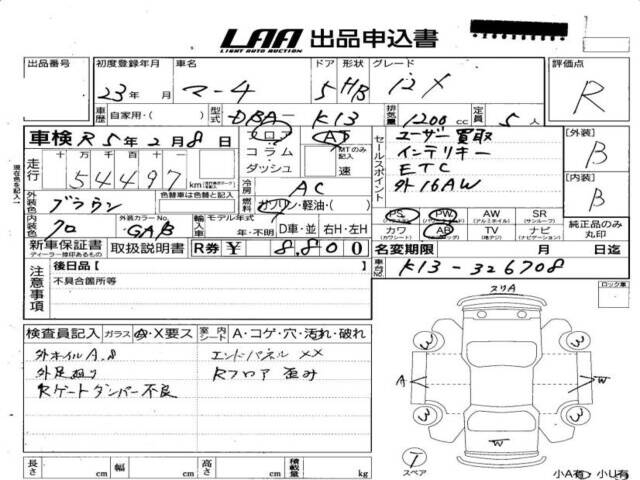 LAA 出品申込書
LIGHT AUTO AUCTION
出品番号 初度登録年月 車名 ドア 形状 グレード 評価点
23年 月 マーチ 5 HB 12X R
車歴 自家用・( ) 型式 DBA- K13 排気量 1200 cc 定員 5 人
車検 R5年2月8日 フロア AT セールスポイント ユーザー買取 [外装]
走行 十 万 千 百 十 コラム MTのみ記入 インテリキー B
54497 km ダッシュ 速 ETC
冷房 AC 外16AW [内装]
外装色 ブラウン 色替車は色替と記入 燃料 ガソリン・軽油・( ) B
内装色 クロ 外装カラーNo. GAB 輸入車 モデル年式 年・不明 D車・並 右H・左H
PS PW AW SR
(パワステ) (パワーウインド) (アルミホイル) (サンルーフ)
カワ AB TV ナビ 純正品のみ丸印
(カワシート) (地デジ) (ナビゲーション)
新車保証書 取扱説明書 R券 ¥ 8,800 名変期限 月 日迄
ディーラー捺印あるもの
現在色を記入
注意事項 後日品[ ] 車台No. K13-326708
不具合箇所等
ヌリA ロック車
検査員記入 ガラス A・X要ス 室内 シート A・コゲ・穴・汚れ・破れ
外ホイルA.8 エンドパネル XX
外足廻り Rフロア 歪み
Rゲートダンパー不良
A W
W
T
スペア
長さ cm 幅 cm 高さ cm 積載量 kg 小A有 小U有